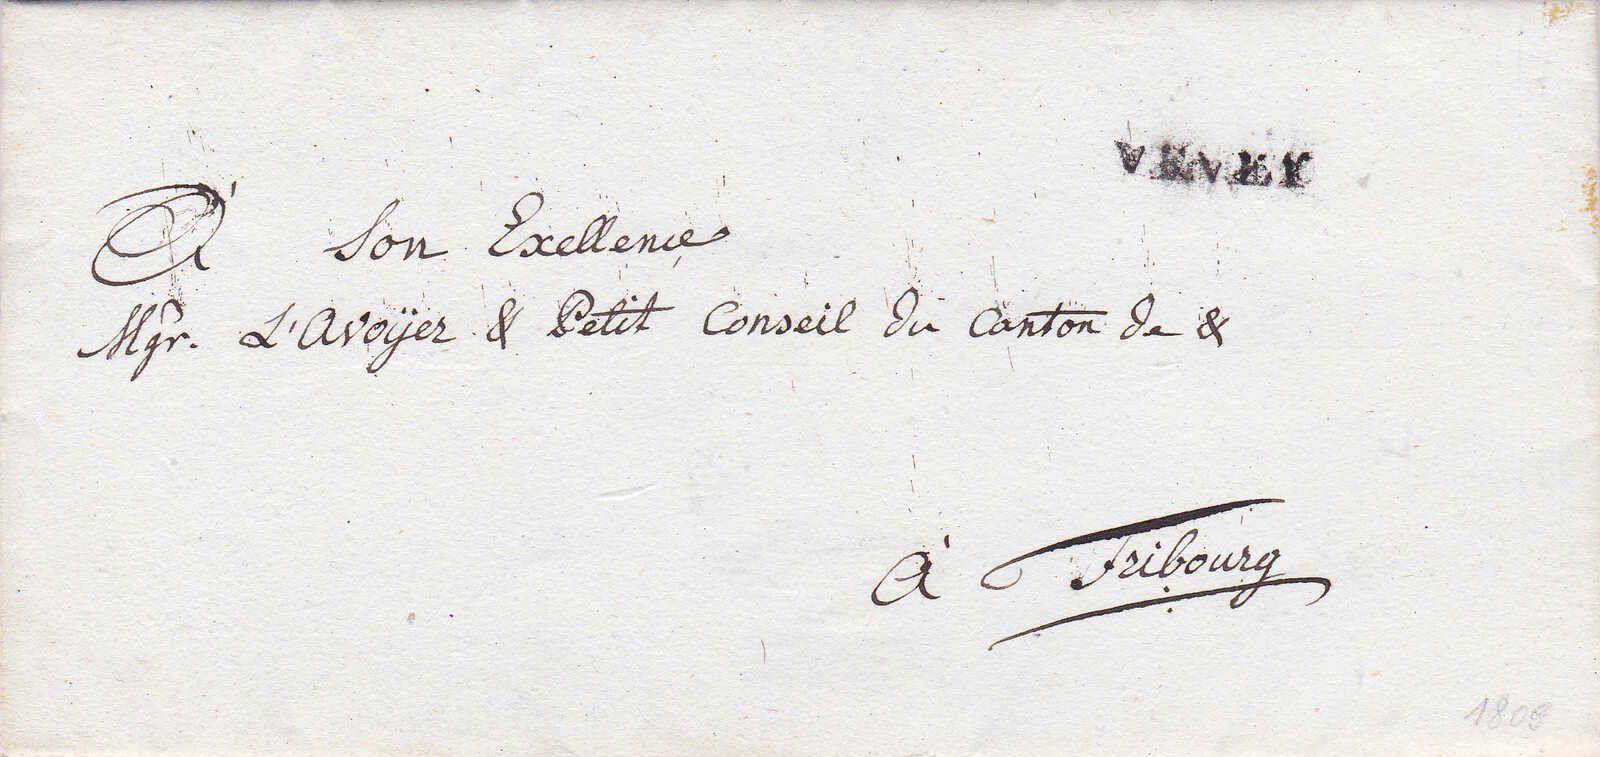 VEVEY
À Son Exellence
Mgr. L'Avoÿer & Petit Conseil du Canton de &
à Fribourg